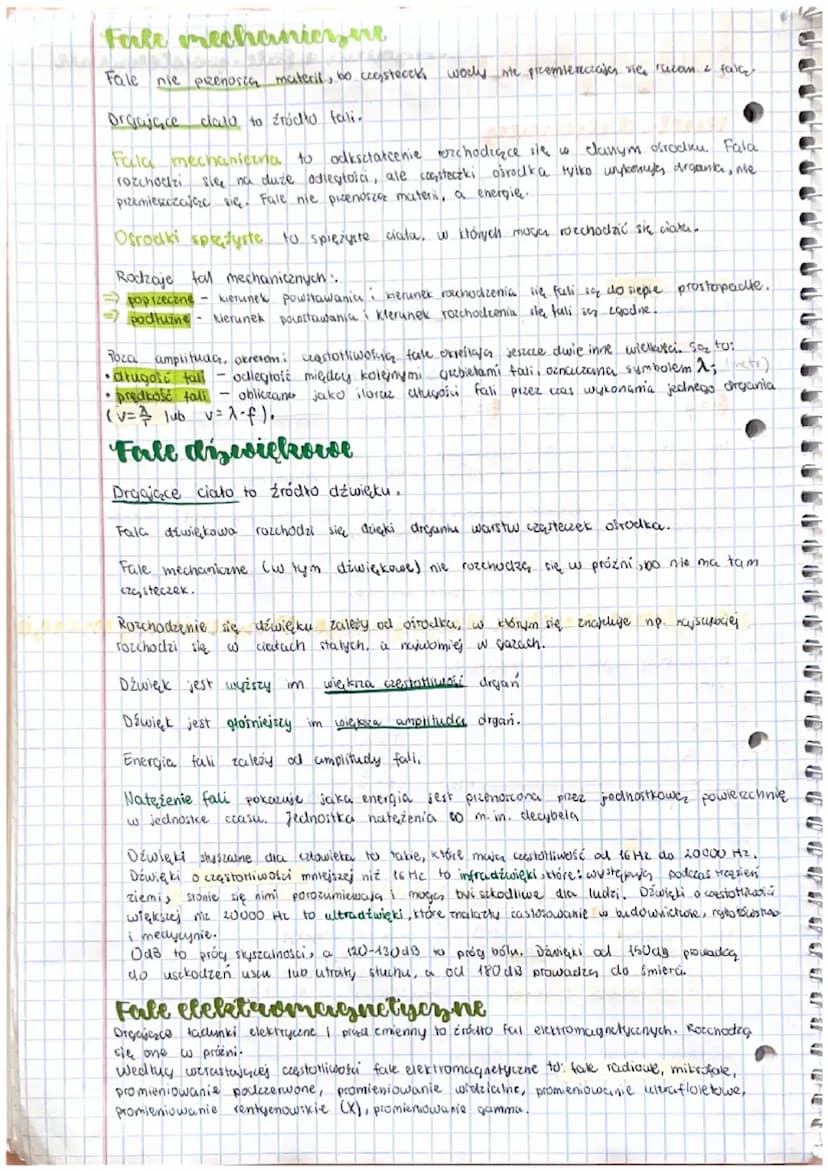 Fale mechaniczne
Fale nie przenoszą materii, bo cząsteczki wody nie przemieszczają się razem z falą.
Drgające ciało to źródło fali.
Fala mechaniczna to odkształcenie rozchodzące się w danym ośrodku. Fala
rozchodzi się na duże odległości, ale cząsteczki ośrodka tylko wykonują drgania, nie
przemieszczając się. Fale nie przenoszą materii, a energię.
Ośrodki sprężyste to sprężyste ciała, w których mogą rozchodzić się ciała.
Rodzaje fal mechanicznych:
⇒ poprzeczne - kierunek powstawania i kierunek rozchodzenia się fali są do siebie prostopadłe.
⇒ podłużne - kierunek powstawania i kierunek rozchodzenia się fali są zgodne.
Poza amplitudą, okresem i częstotliwością fale określają jeszcze dwie inne wielkości. Są to:
• długość fali - odległość między kolejnymi grzbietami fali, oznaczana symbolem λ; (metr)
• prędkość fali - obliczana jako iloraz długości fali przez czas wykonania jednego drgania
(v=λ/T lub v=λ·f).
Fale dźwiękowe
Drgające ciało to źródło dźwięku.
Fala dźwiękowa rozchodzi się dzięki drganiu warstw cząsteczek ośrodka.
Fale mechaniczne (w tym dźwiękowe) nie rozchodzą się w próżni, bo nie ma tam
cząsteczek.
Rozchodzenie się dźwięku zależy od ośrodka, w którym się znajduje np. najszybciej
rozchodzi się w ciałach stałych, a najwolniej w gazach.
Dźwięk jest wyższy im większa częstotliwość drgań
Dźwięk jest głośniejszy im większa amplituda drgań.
Energia fali zależy od amplitudy fali.
Natężenie fali pokazuje jaka energia jest przenoszona przez jednostkową powierzchnię
w jednostce czasu. Jednostka natężenia to m.in. decybela
Dźwięki słyszalne dla człowieka to takie, które mają częstotliwość od 16 Hz do 20000 Hz.
Dźwięki o częstotliwości mniejszej niż 16 Hz to infradźwięki, które: występują podczas trzęsień
ziemi, słonie się nimi porozumiewają i mogą być szkodliwe dla ludzi. Dźwięki o częstotliwości
większej niż 20000 Hz to ultradźwięki, które znalazły zastosowanie w budownictwie, rybołówstwo
i medycynie.
0dB to próg słyszalności, a 120-130dB to próg bólu. Dźwięki od 150dB prowadzą
do uszkodzeń uszu lub utraty słuchu, a od 180 dB prowadzą do śmierci.
Fale elektromagnetyczne
Drgające ładunki elektryczne i prąd zmienny to źródło fal elektromagnetycznych. Rozchodzą
się one w próżni.
Według wzrastającej częstotliwości fale elektromagnetyczne to: fale radiowe, mikrofale,
promieniowanie podczerwone, promieniowanie widzialne, promieniowanie ultrafioletowe,
promieniowanie rentgenowskie (X), promieniowanie gamma.